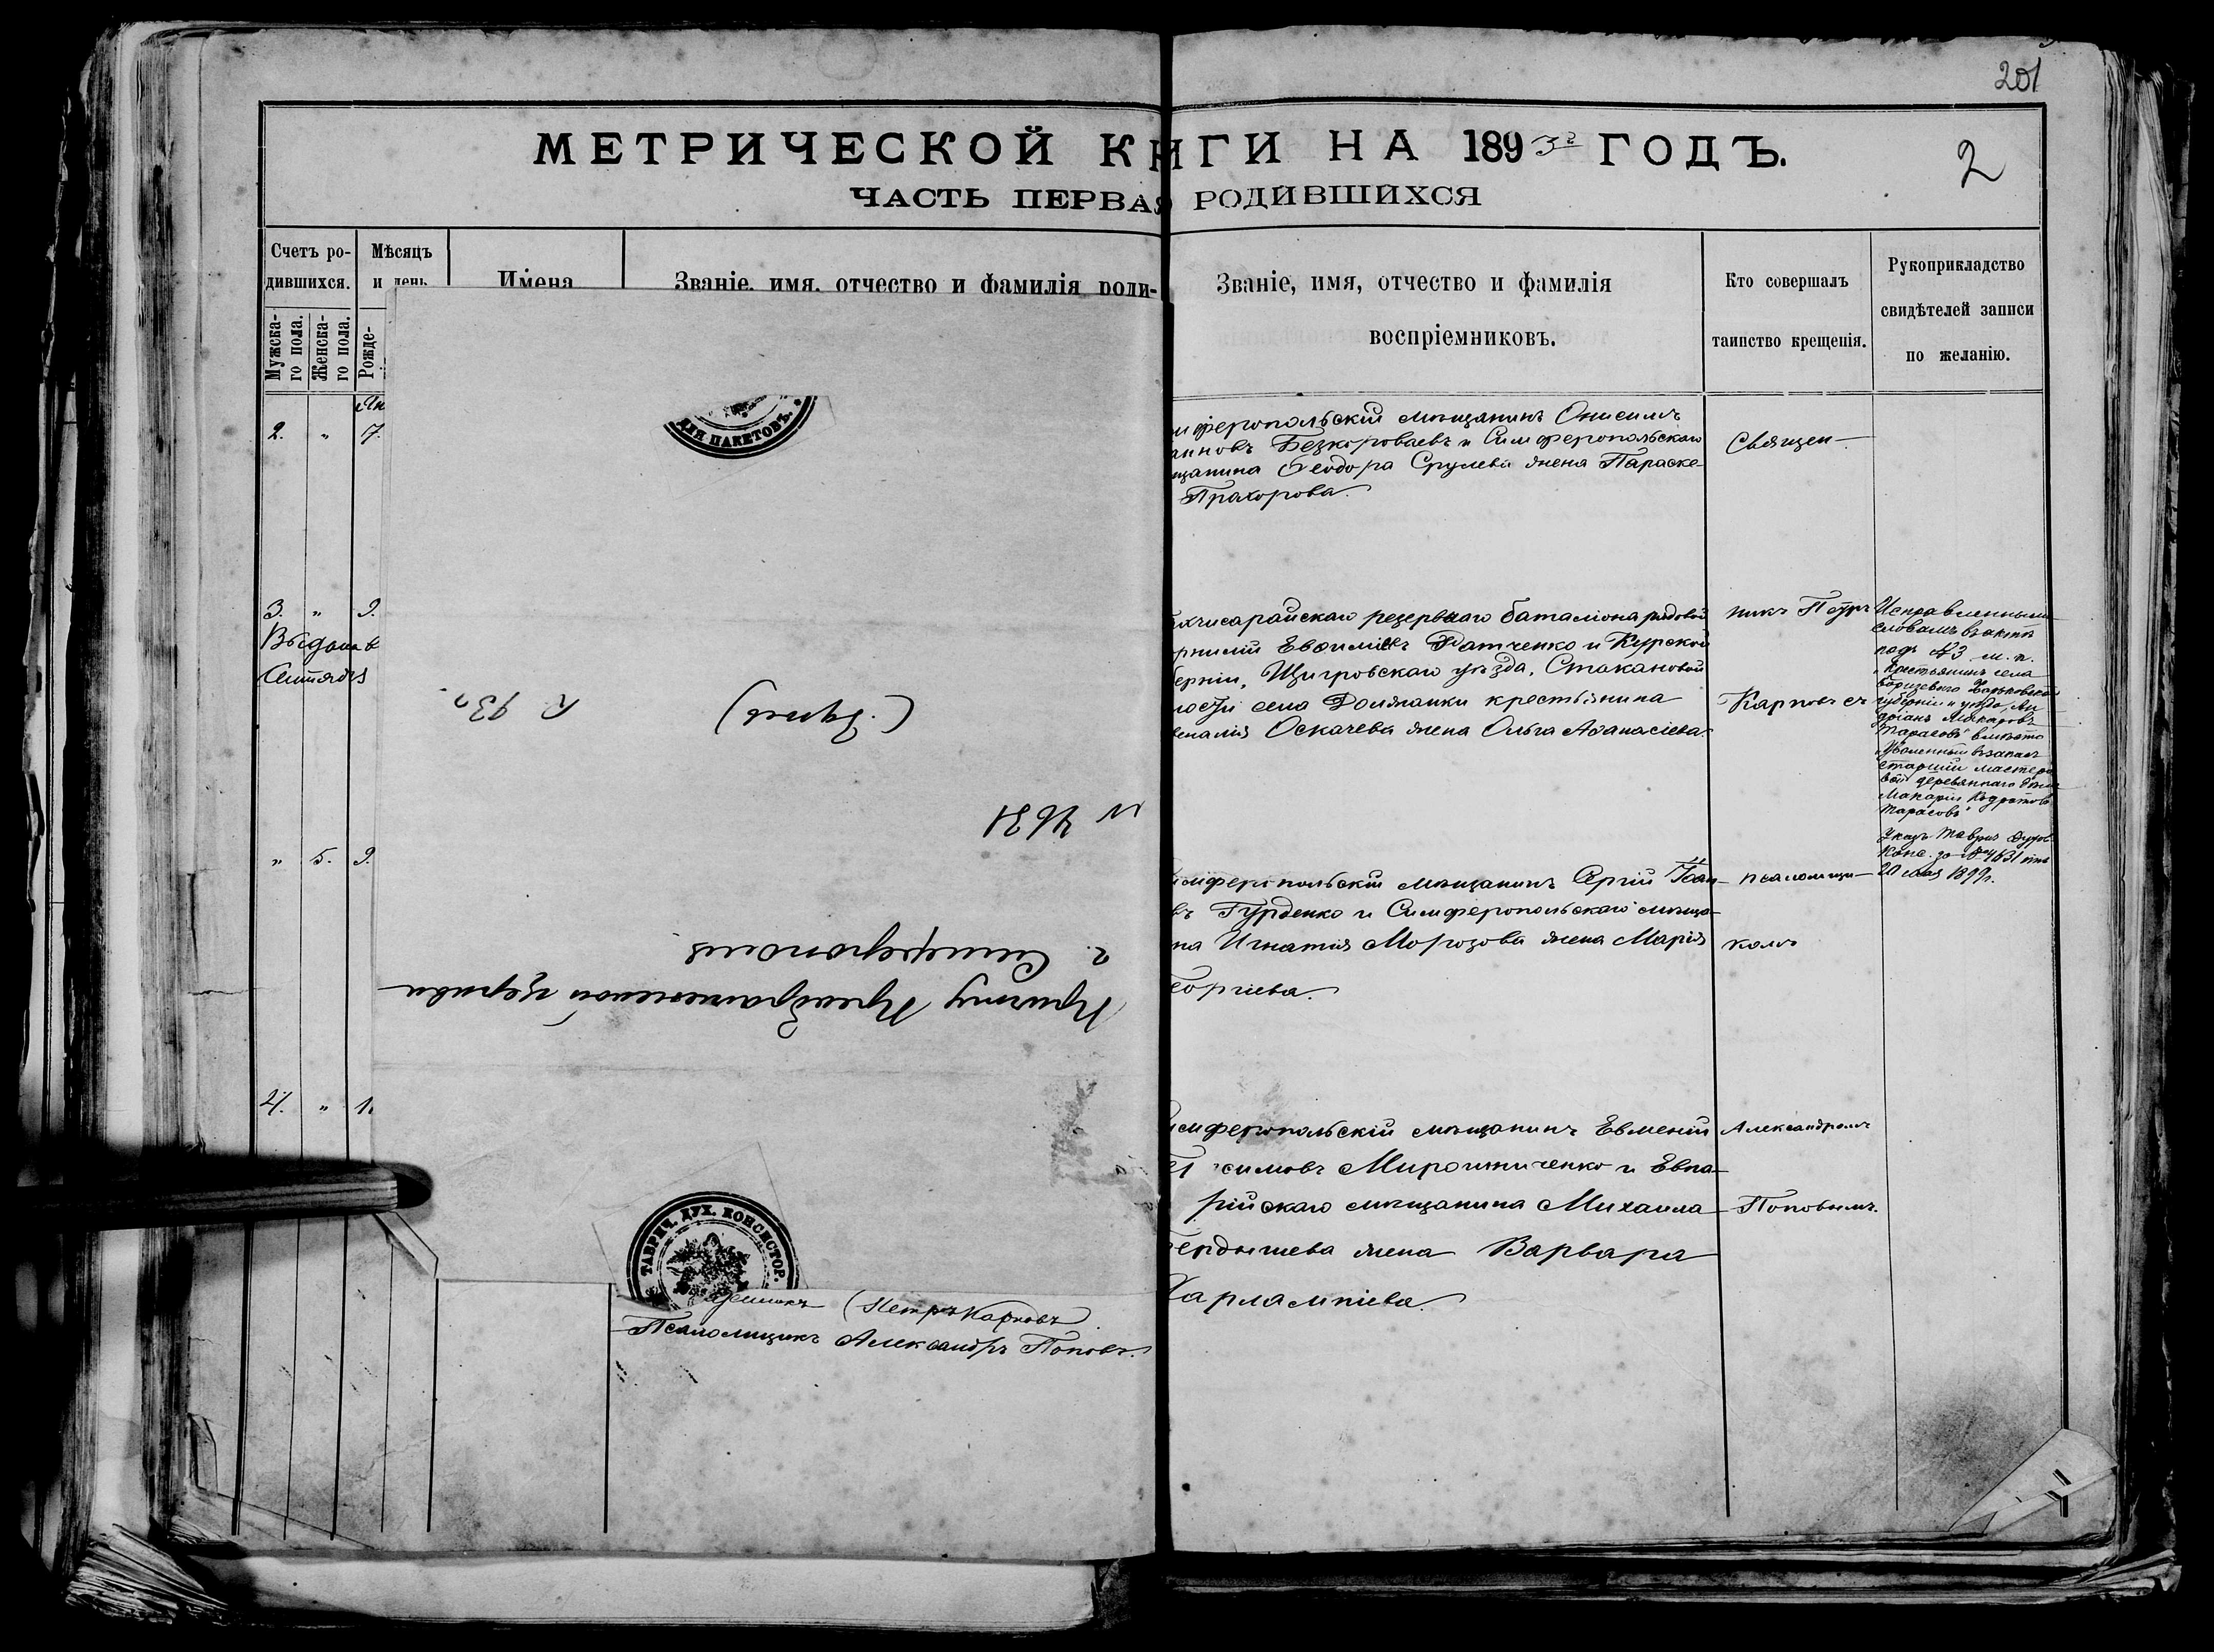 201
МЕТРИЧЕСКОЙ КНИГИ НА 1893 г ГОДЪ.
2
ЧАСТЬ ПЕРВАЯ РОДИВШИХСЯ
Счетъ ро-
дившихся.
Мужска-
го пола.
Женска-
го пола.
Мѣсяцъ
и день
Рожде-
Имена
Званіе, имя, отчество и фамилія роди-
Званіе, имя, отчество и фамилія
воспріемниковъ.
Кто совершалъ
таинство крещенія.
Рукоприкладство
свидѣтелей записи
по желанію.
Ян
2. " 7.
ДЛЯ ПАКЕТОВЪ.
имферопольскій мѣщанинъ Онисимъ
анновъ Безкороваевъ и Симферопольскаго
щанина Ѳеодора Срулева жена Параске-
Прахорова.
Священ-
3. " 9.
Выданъ
хчисарайскаго резервнаго баталіона рядовой
рнилій Евѳиміевъ Ватченко и Курской
ерніи, Щигровскаго уѣзда, Стакановой
лости села Должанки крестьянина
еналія Оскачева жена Ольга Аѳанасіева.
никъ Петръ
Карповъ съ
Исправленнымъ
словамъ въ актѣ
подъ №3 м. п.
"Крестьянинъ села
губерніи и уѣзда, Ан
дріанъ Макаровъ
Тарасовъ" вмѣсто
"Уволенный въ запасъ
старшій мастеро
вой
Макарій
Тарасовъ"
Указъ Таврич. Духов.
Конс. за № 4631 отъ
20 мая 1899 г.
" 5. 9.
имферопольскій мѣщанинъ Сергій Іоан-
въ Гурденко и Симферопольскаго мѣща-
на Игнатія Морозова жена Марія
еоргіева.
псаломщи-
комъ
4. " 1
имферопольскій мѣщанинъ Евменій
симовъ Мирошниченко и Евпа-
рійскаго мѣщанина Михаила
ердышева жена Варвара
Харлампіева.
Александромъ
Поповымъ.
Причту Преображенской церкви
г. Симферополя
N 4631
ТАВРИЧ. ДУХ. КОНСИСТОР.
Петръ Карповъ
Псаломщикъ Александръ Поповъ.